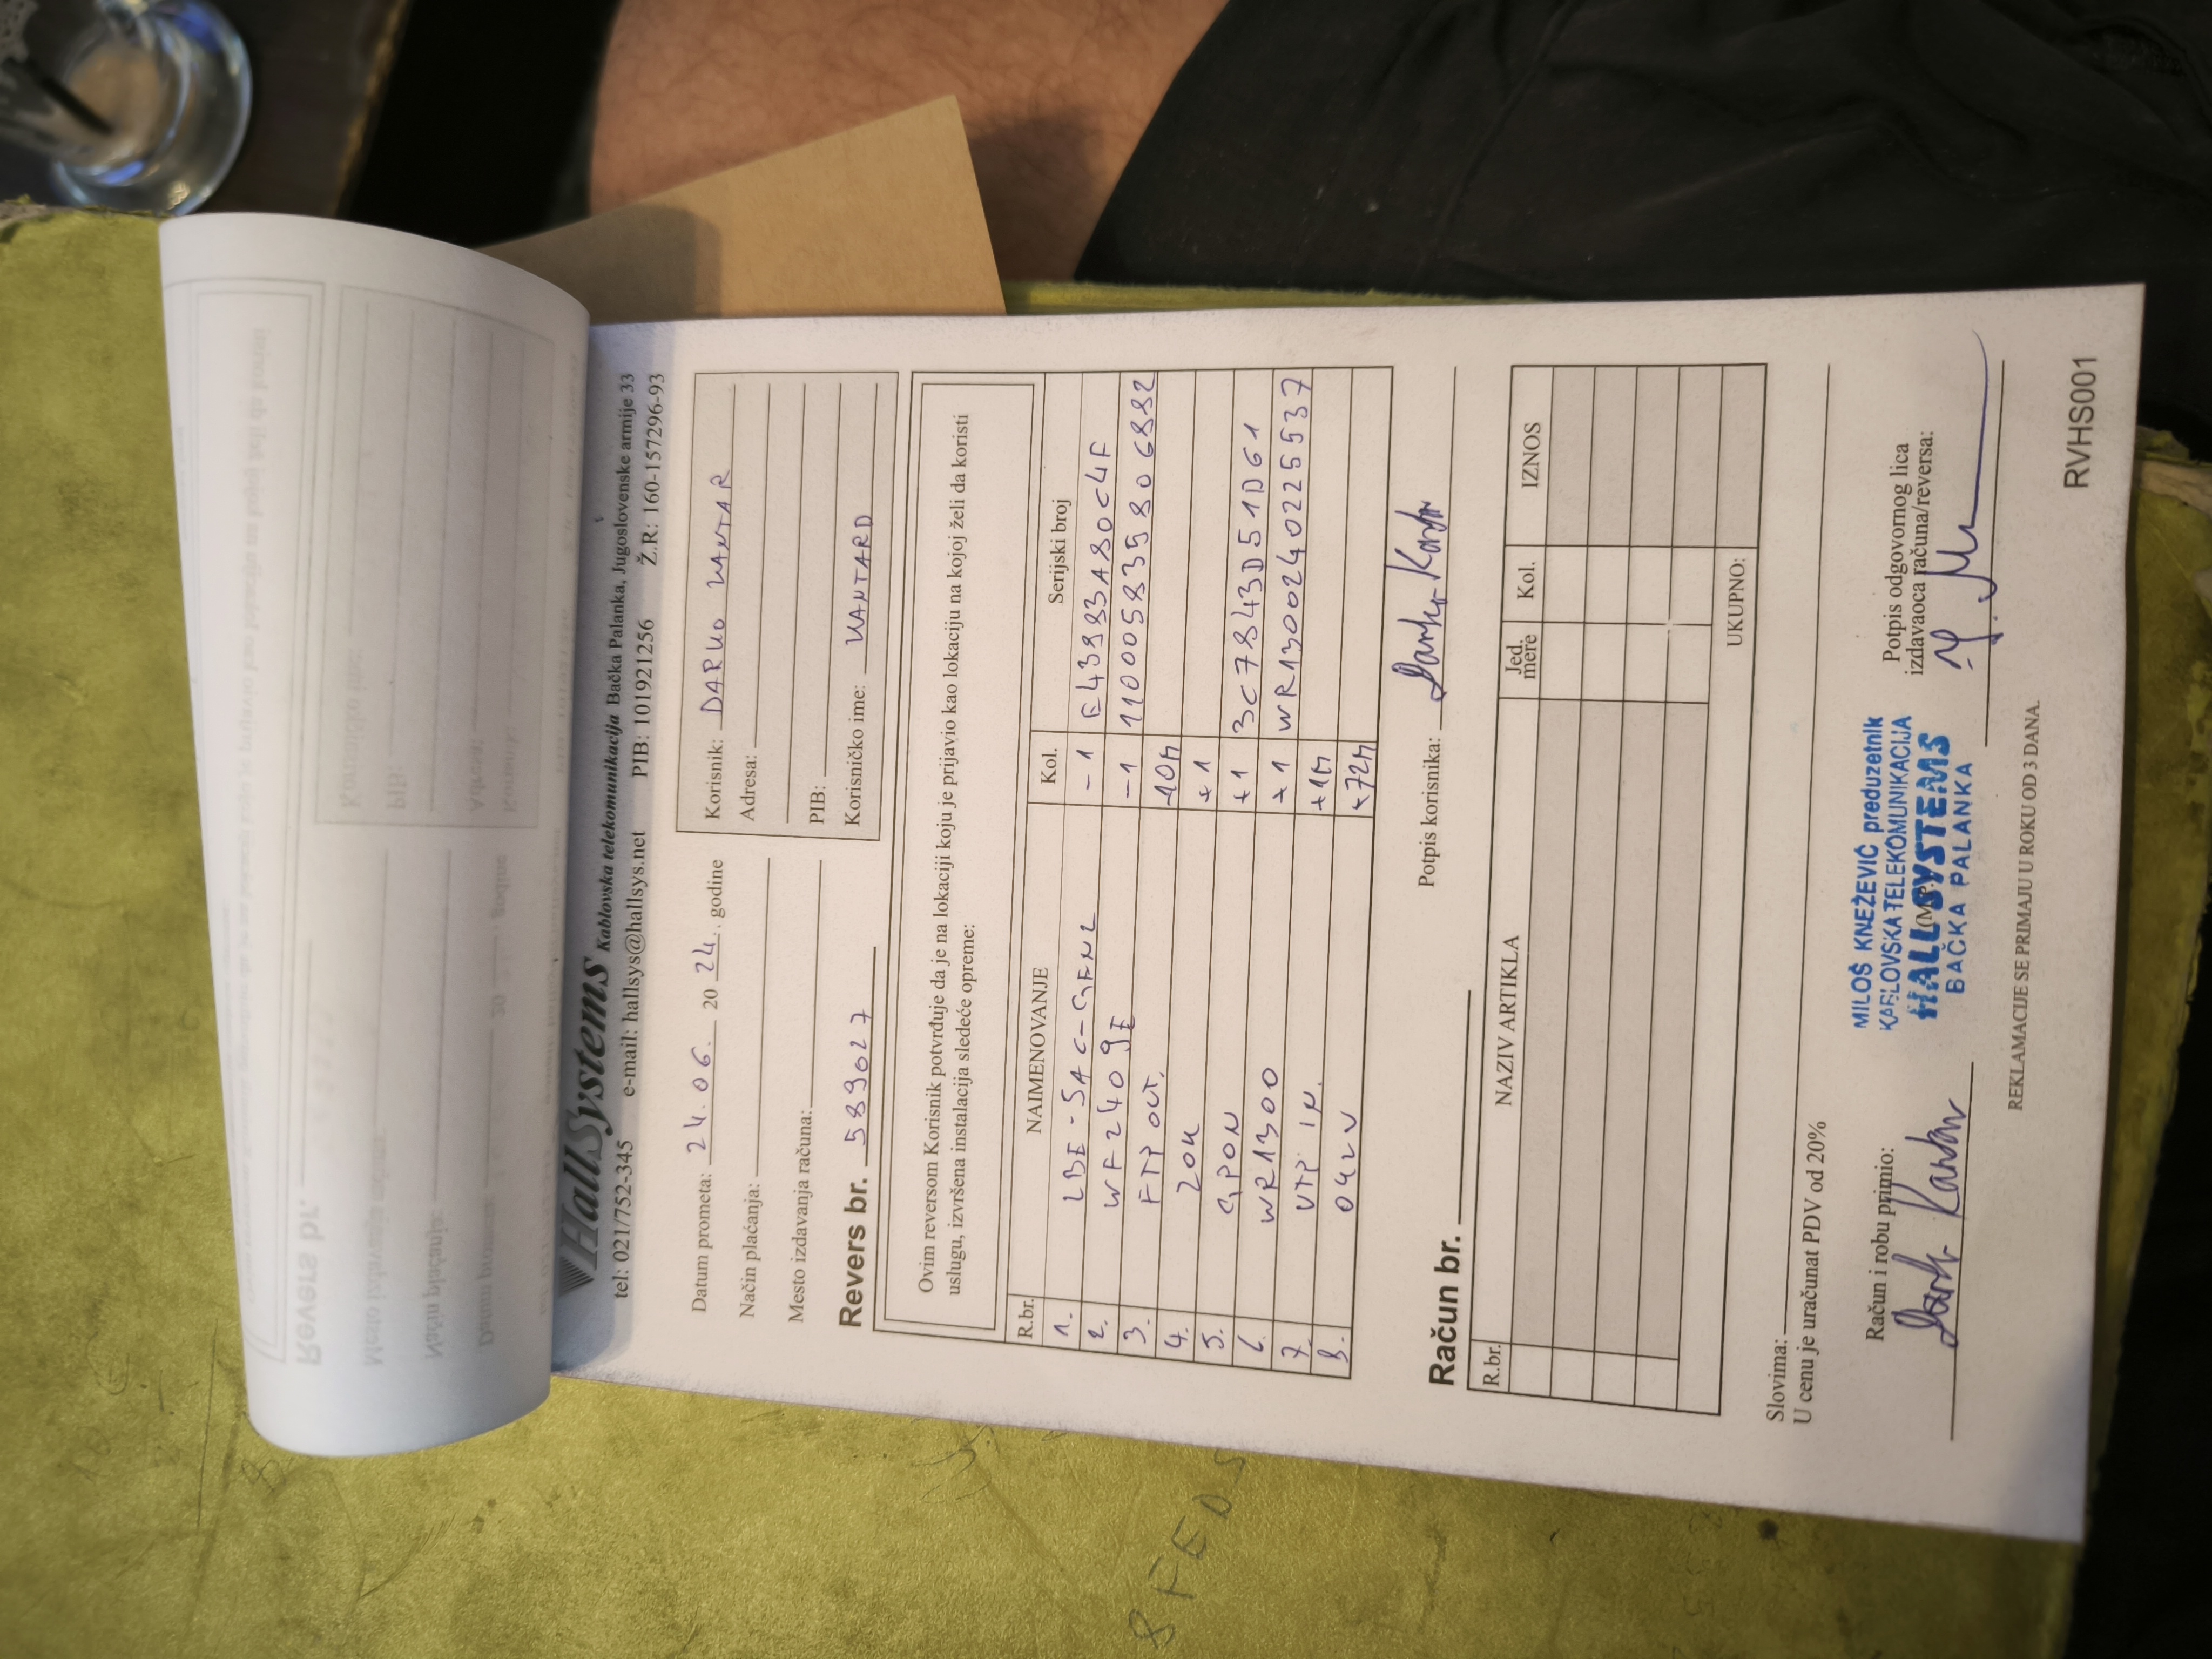 HallSystems Kablovska telekomunikacija Bačka Palanka, Jugoslovenske armije 33
tel: 021/752-345 e-mail: hallsys@hallsys.net PIB: 101921256 Ž.R: 160-157296-93
Datum prometa: 24.06. 20 24. godine
Način plaćanja:
Mesto izdavanja računa:
Revers br. 589027
Korisnik: DARKO KANTAR
Adresa:
PIB:
Korisničko ime: KANTARD
Ovim reversom Korisnik potvrđuje da je na lokaciji koju je prijavio kao lokaciju na kojoj želi da koristi
uslugu, izvršena instalacija sledeće opreme:
R.br. NAIMENOVANJE Kol. Serijski broj
1. LBE-5AC-GEN2 -1 E43883A80C4F
2. WF2409E -1 1100058359806882
3. FTP OUT. -10m
4. ZOK +1
5. GPON +1 3C7843D51D61
6. WR1300 +1 WR13002402255 37
7. UTP IN. +1m
8. 04KV +72m
Potpis korisnika: Darko Kantar
Račun br.
R.br. NAZIV ARTIKLA Jed. mere Kol. IZNOS
UKUPNO:
Slovima:
U cenu je uračunat PDV od 20%
Račun i robu primio:
Darko Kantar
MILOŠ KNEŽEVIĆ preduzetnik
KABLOVSKA TELEKOMUNIKACIJA
HALLSYSTEMS
BAČKA PALANKA
Potpis odgovornog lica
izdavaoca računa/reversa:
REKLAMACIJE SE PRIMAJU U ROKU OD 3 DANA.
RVHS001